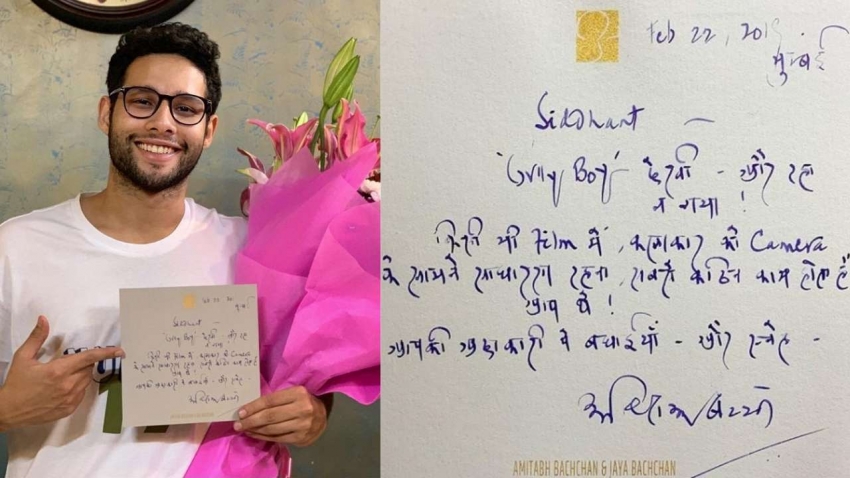 Feb 22, 2019
मुम्बई
Siddhant –
'Gully Boy' देखी – और रहा
न गया !
किसी भी Film में, कलाकार को Camera
के सामने साधारण रहना, सबसे कठिन काम होता है
आप थे !
आपकी अदाकारी पे बधाईयाँ – और स्नेह –
अमिताभ बच्चन
AMITABH BACHCHAN & JAYA BACHCHAN